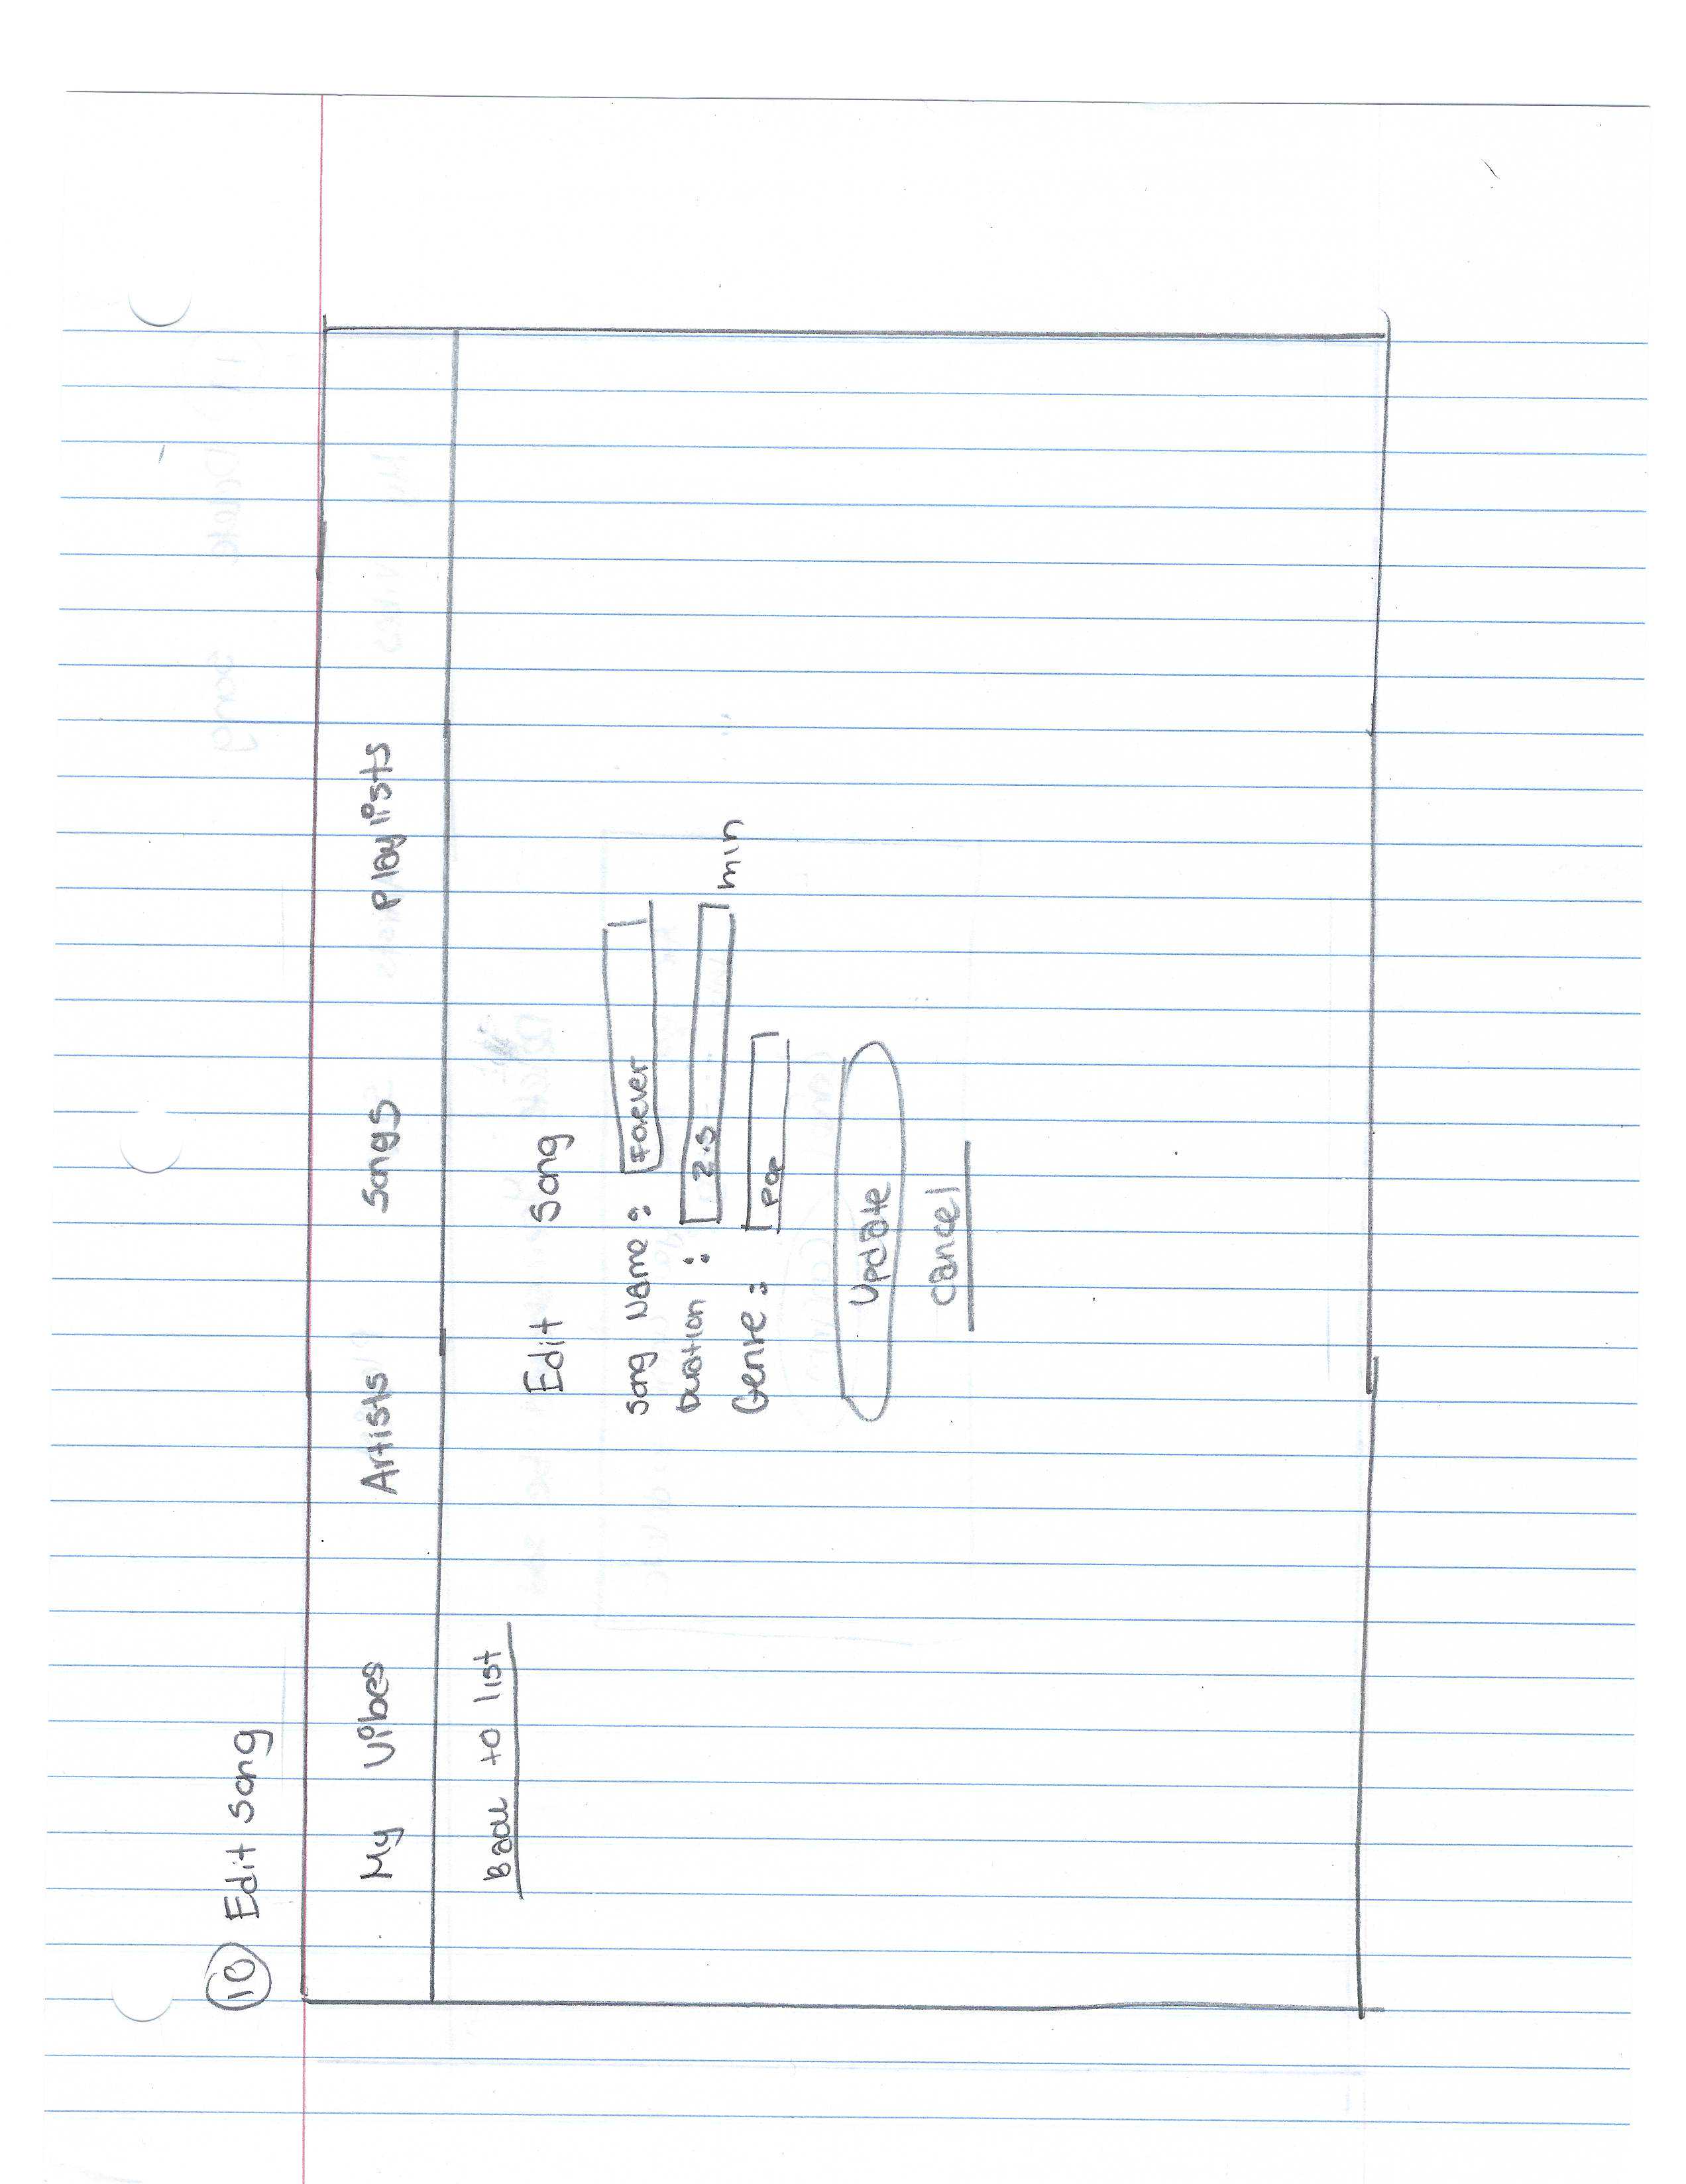 10 Edit song
My Vibes Artists Songs Playlists
Back to list
Edit Song
Song Name: Foever
Duration: 2.5 min
Genre: Pop
Update
cancel